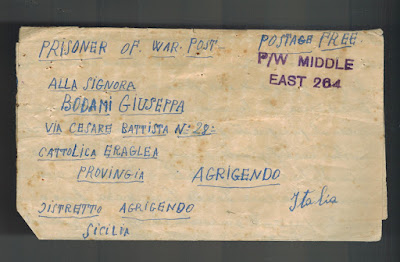 PRISONER OF WAR. POST
POSTAGE FREE
P/W MIDDLE
EAST 264
ALLA SIGNORA
BODAMI GIUSEPPA
VIA CESARE BATTISTA N: 28:
CATTOLICA ERAGLEA
PROVINGIA AGRIGENDO
Italia
DISTRETTO AGRIGENDO
SICILIA